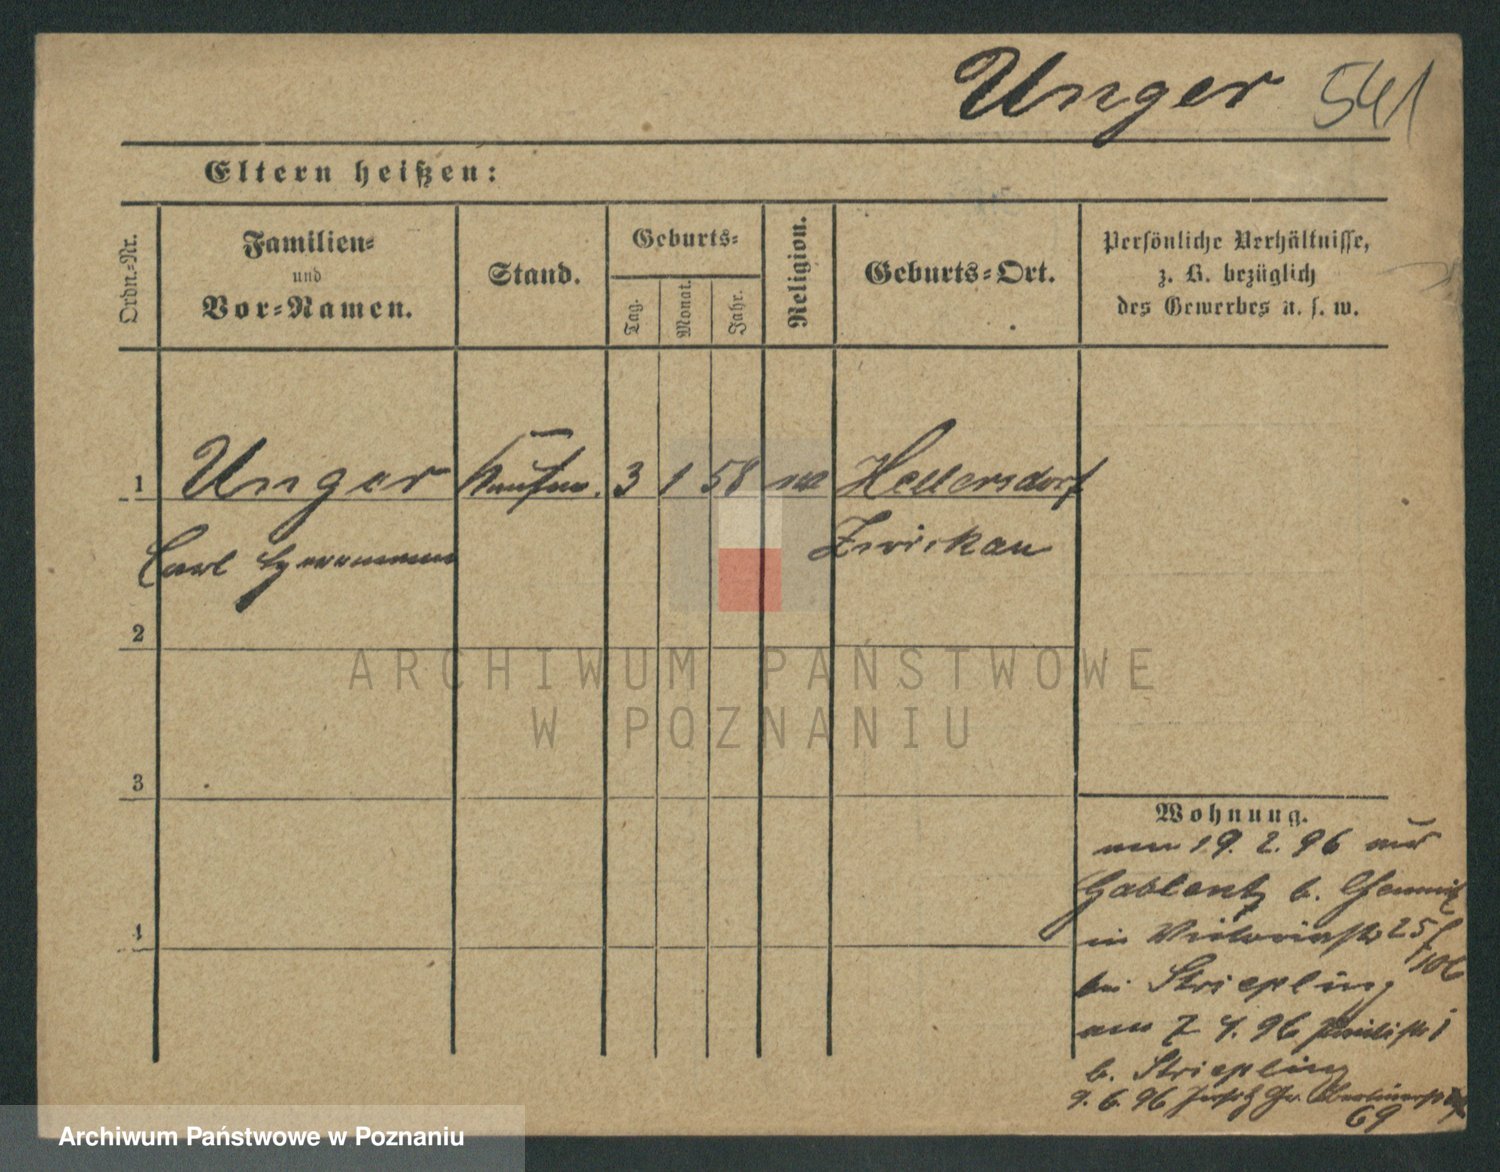 Unger 541
Eltern heißen:
Ordn.-Nr.
Familien-
und
Vor-Namen.
Stand.
Geburts-
Tag.
Monat.
Jahr.
Religion.
Geburts-Ort.
Persönliche Verhältnisse,
z. B. bezüglich
des Gewerbes u. s. w.
1 Unger Kaufm. 3 1 58 Hellersdorf
Carl Herrmann Zwickau
2
3
4
Wohnung.
am 19. 2. 96 aus
Gablentz b. Chemnitz
in Victoriastr 25
bei Striepling
am 7 4. 96
b. Striepling
9. 6. 96
69
ARCHIWUM PAŃSTWOWE
W POZNANIU
Archiwum Państwowe w Poznaniu